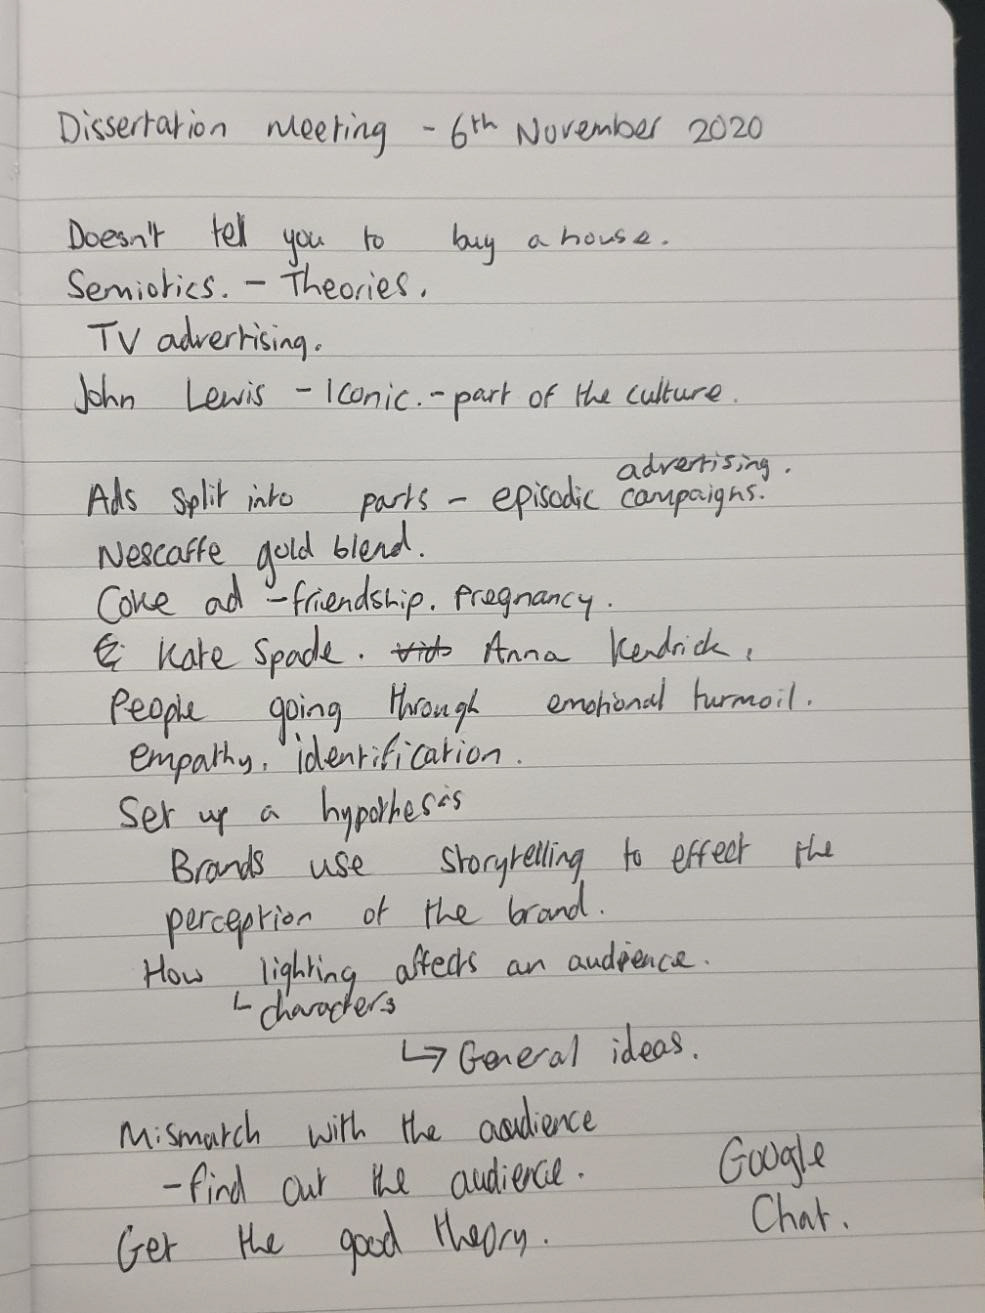 Dissertation meeting - 6th November 2020
Doesn't tell you to buy a house.
Semiotics. - Theories.
TV advertising.
John Lewis - Iconic. - part of the culture.
advertising.
Ads split into parts - episodic campaigns.
Nescaffe gold blend.
Coke ad - friendship. Pregnancy.
Kate Spade. Anna Kendrick.
People going through emotional turmoil.
empathy. identification.
Set up a hypothesis
Brands use storytelling to effect the
perception of the brand.
How lighting affects an audience.
↳ characters
↳ General ideas.
Mismatch with the audience
- find out the audience.
Get the good theory.
Google
Chat.